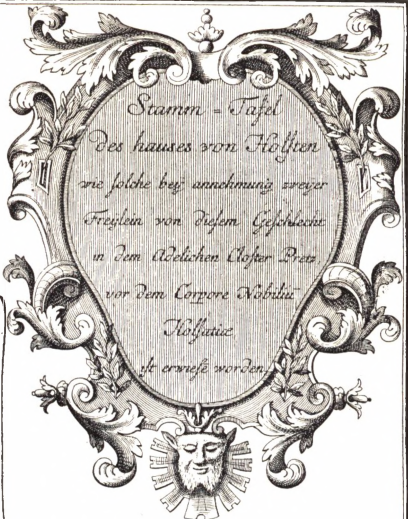 Stamm = Tafel
des hauses von Holsten
wie solche beÿ annehmung zweyer
Freÿlein von diesem Geschlecht
in dem Adelichen Closter Pretz
vor dem Corpore Nobiliū
Holsatiæ
ist erwiese worden